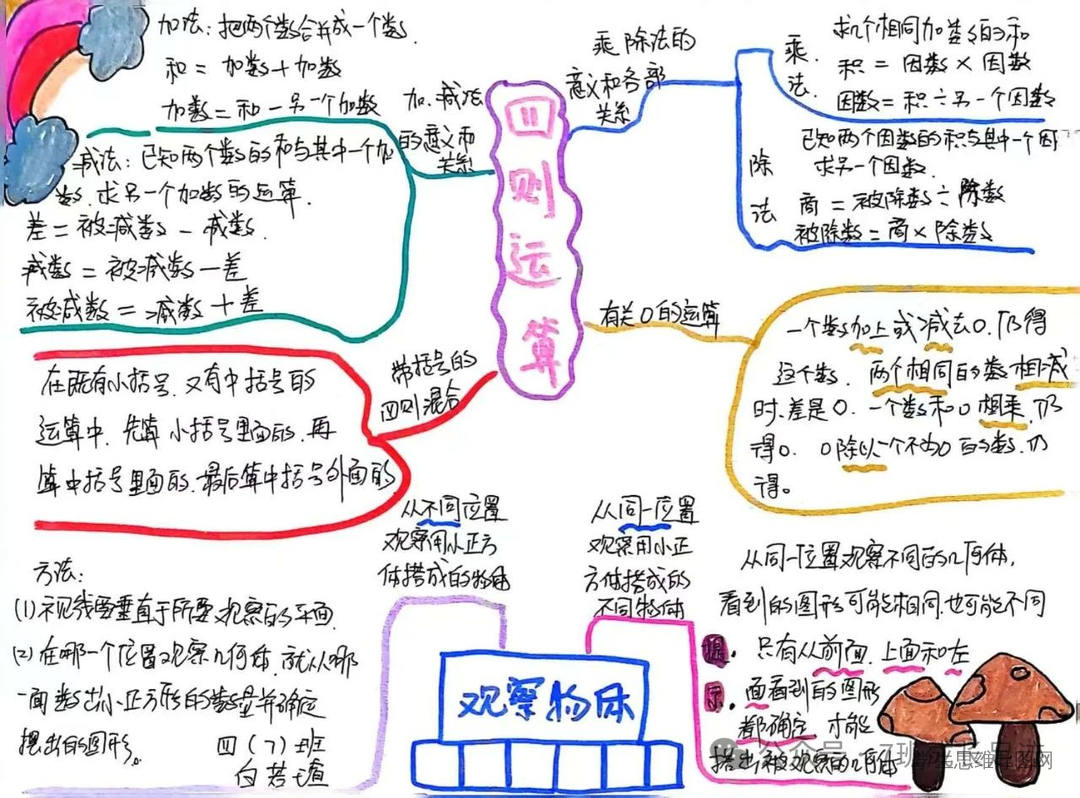 四则运算
加、减法
的意义和
关系
加法：把两个数合并成一个数.
和＝加数＋加数
加数＝和－另一个加数
减法：已知两个数的和与其中一个加
数.求另一个加数的运算.
差＝被减数－减数.
减数＝被减数－差
被减数＝减数＋差
乘除法的
意义和各部
关系
乘法.
求几个相同加数的和
积＝因数×因数
因数＝积÷另一个因数
除法
已知两个因数的积与其中一个因
求另一个因数.
商＝被除数÷除数
被除数＝商×除数
有关0的运算
一个数加上或减去0.仍得
这个数. 两个相同的数相减
时.差是0. 一个数和0相乘.仍
得0. 0除以一个不为0的数.仍
得。
带括号的
四则混合
在既有小括号.又有中括号的
运算中.先算小括号里面的.再
算中括号里面的.最后算中括号外面的
观察物体
从不同位置
观察用小正方
体搭成的物体
方法：
(1)视线要垂直于所要观察的平面.
(2)在哪一个位置观察几何体.就从哪
一面数出小正方形的数量并确定
摆出的图形。
四(7)班
从同一位置
观察用小正
方体搭成的
不同物体
从同一位置观察不同的几何体.
看到的图形可能相同.也可能不同
提示.
只有从前面.上面和左
面看到的图形
都确定.才能
搭出被观察的几何体
公众号
思维导图网